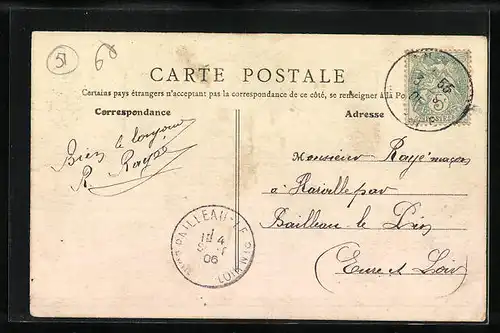 51
68
CARTE POSTALE
Certains pays étrangers n'acceptant pas la correspondance de ce côté, se renseigner à la Po
Correspondance
Adresse
Bien le bonjour
R. Rayé
Monsieur Rayé maçon
à Harville par
Bailleau le Pin
(Eure et Loir)
BAILLEAU-LE
4
06